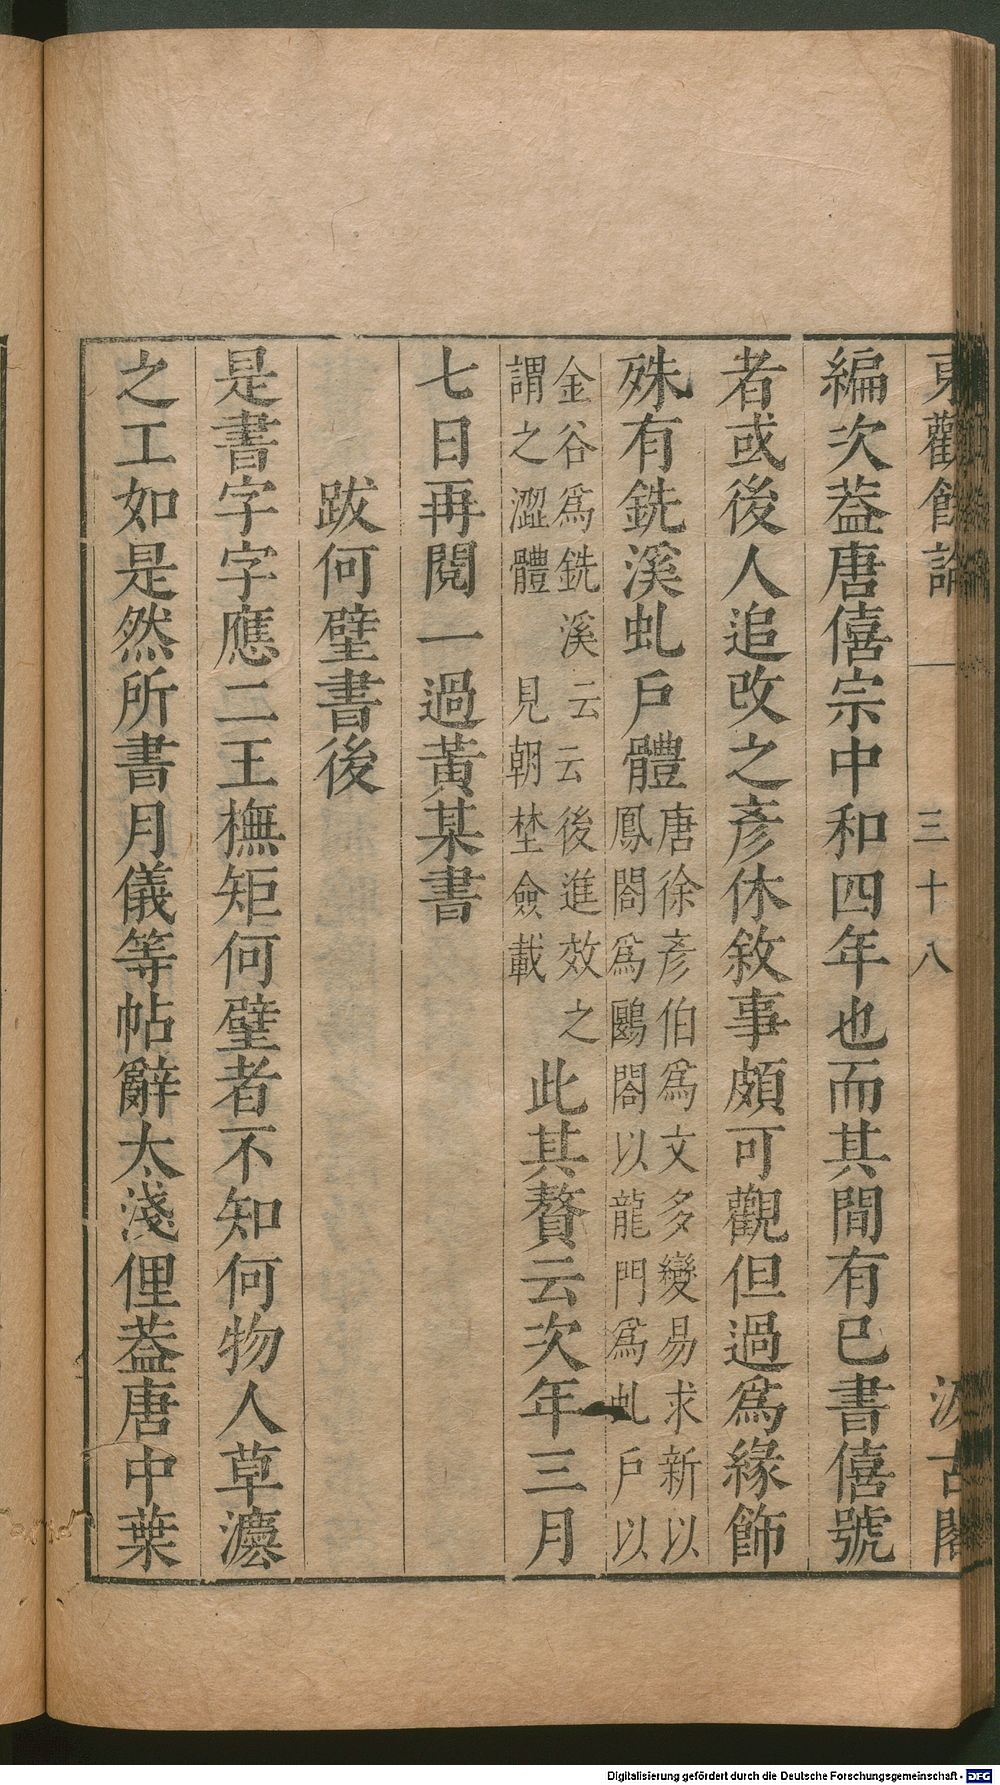 東觀餘論 三十八 汲古閣
編次葢唐僖宗中和四年也而其間有已書僖號
者或後人追改之彥休敘事頗可觀但過爲緣飾
殊有銑溪虬戶體唐徐彥伯爲文多變易求新以
鳳閣爲鷗閣以龍門爲虬戶以
金谷爲銑溪云云後進效之
謂之澀體見朝埜僉載此其贅云次年三月
七日再閱一過黃某書
跋何壁書後
是書字字應二王橅矩何壁者不知何物人草灋
之工如是然所書月儀等帖辭太淺俚葢唐中葉
Digitalisierung gefördert durch die Deutsche Forschungsgemeinschaft - DFG